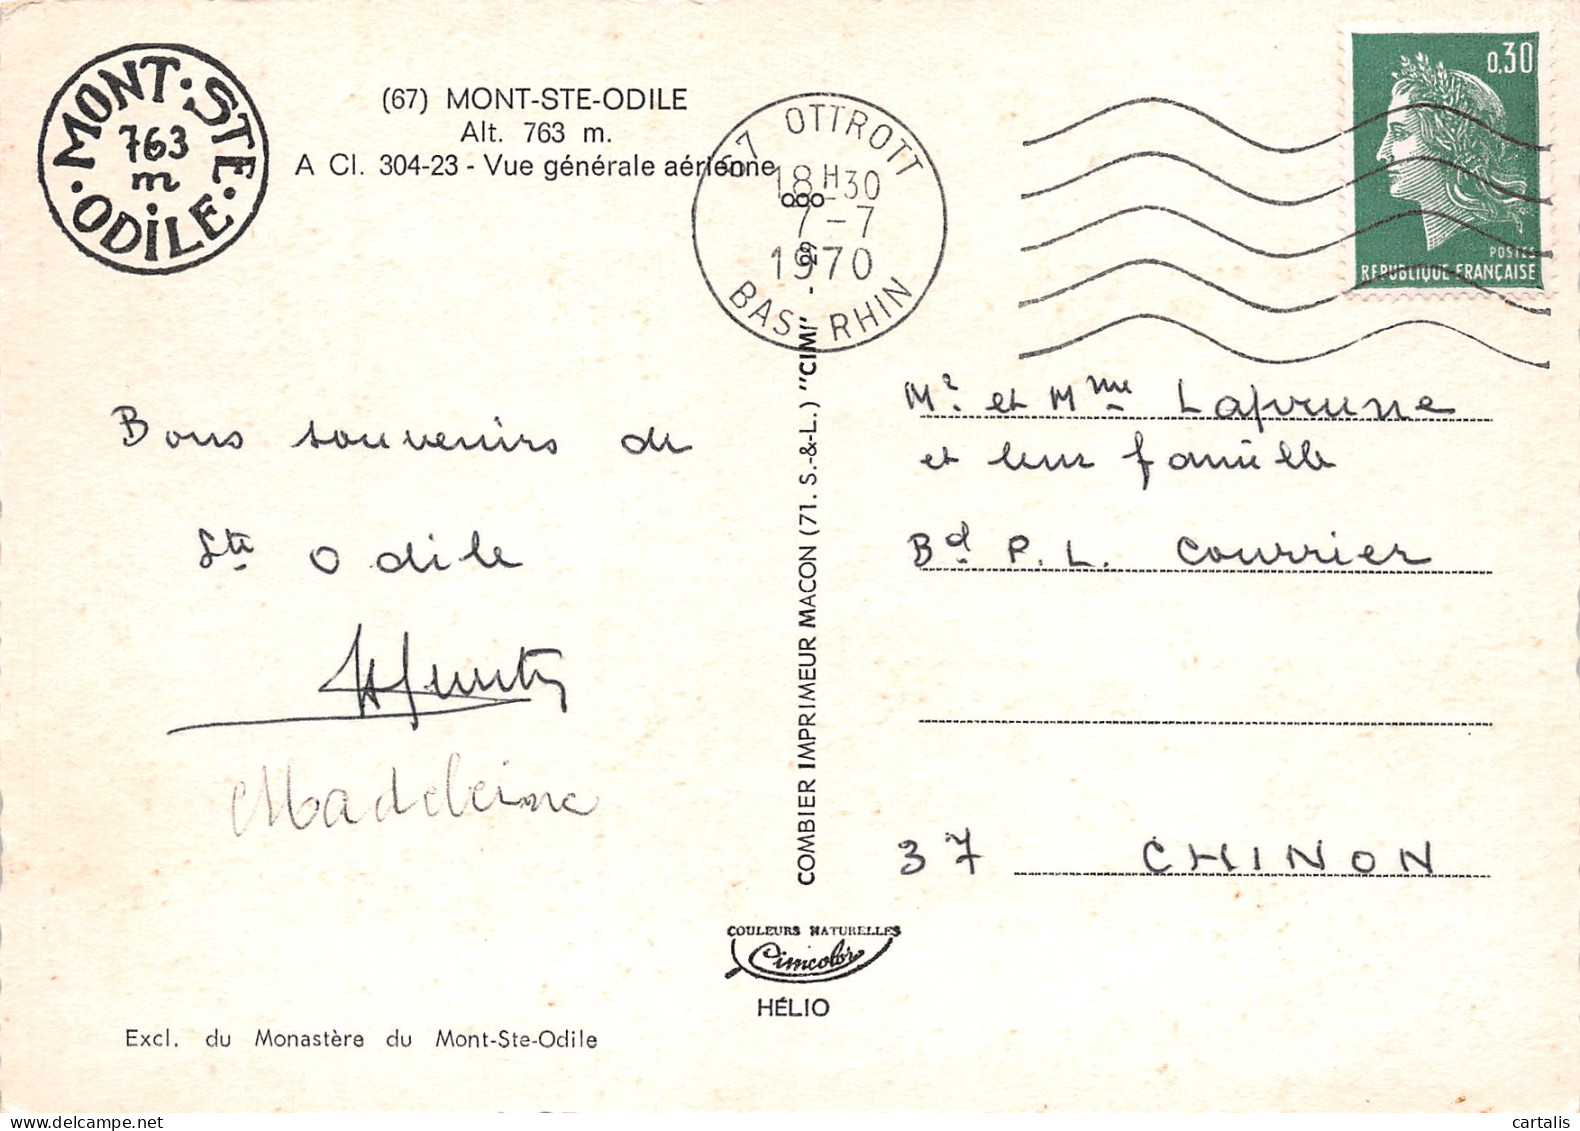 MONT·STE·ODILE·
763
m
(67) MONT-STE-ODILE
Alt. 763 m.
A Cl. 304-23 - Vue générale aérienne
67 OTTROTT
18 H 30
7-7
1970
BAS RHIN
0,30
POSTES
REPUBLIQUE FRANÇAISE
Bons souvenirs de
Ste Odile
Madeleine
Mr. et Mme Laprune
et leur famille
Bd P. L. Courrier
37 CHINON
COMBIER IMPRIMEUR MACON (71. S.-&-L.) "CIM" - 69
COULEURS NATURELLES
Cimcolor
HÉLIO
Excl. du Monastère du Mont-Ste-Odile
cartalis